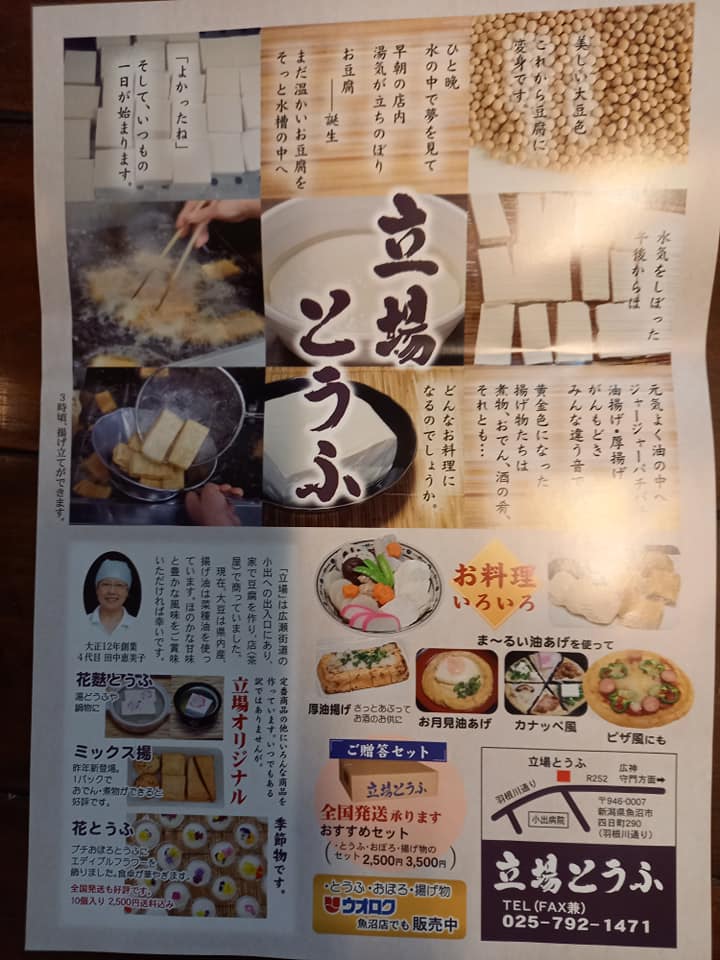 美しい大豆色
これから豆腐に
変身です。
ひと晩
水の中で夢を見て
早朝の店内
湯気が立ちのぼり
お豆腐――誕生
まだ温かいお豆腐を
そっと水槽の中へ
「よかったね」
そして、いつもの
一日が始まります。
水気をしぼった
午後からは
立場
とうふ
元気よく油の中へ
ジャージャーパチパチ
油揚げ・厚揚げ
がんもどき
みんな違う音で
黄金色になった
揚げ物たちは
煮物、おでん、酒の肴、
それとも…
どんなお料理に
なるのでしょうか。
3時頃、揚げ立てができます。
「立場」は広瀬街道の
小出への出入口にあり、
家で豆腐を作り、店(茶
屋)で商っていました。
現在、大豆は県内産、
揚げ油は菜種油を使っ
ています。ほのかな甘味
と豊かな風味をご賞味
いただければ幸いです。
大正12年創業
4代目 田中恵美子
定番商品の他にいろんな商品を
作っています。いつでもある
訳ではありませんが。
立場オリジナル
季節物です。
花麩とうふ
湯どうふや
鍋物に
ミックス揚
昨年新登場。
1パックで
おでん・煮物ができると
好評です。
花とうふ
プチおぼろとうふに
エディブルフラワーを
飾りました。食卓が華やぎます。
全国発送も好評です。
10個入り 2,500円送料込み
お料理
いろいろ
ま〜るい油あげを使って
厚油揚げ さっとあぶって
お酒のお供に
お月見油あげ
カナッペ風
ピザ風にも
ご贈答セット
立場とうふ
全国発送承ります
おすすめセット
(・とうふ・おぼろ・揚げ物の
セット 2,500円 3,500円)
・とうふ・おぼろ・揚げ物
ウオロク
魚沼店でも販売中
立場とうふ
R252
広神
守門方面→
羽根川通り
小出病院
〒946-0007
新潟県魚沼市
四日町290
(羽根川通り)
立場とうふ
TEL(FAX兼)
025-792-1471